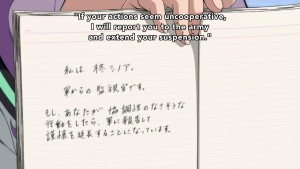 "If your actions seem uncooperative,
I will report you to the army
and extend your suspension."
私は 柊シノア。
軍からの 監視官です。
もし、あなたが 協調性のなさそうな
行動をしたら、軍に報告して
謹慎を延長することになっています。